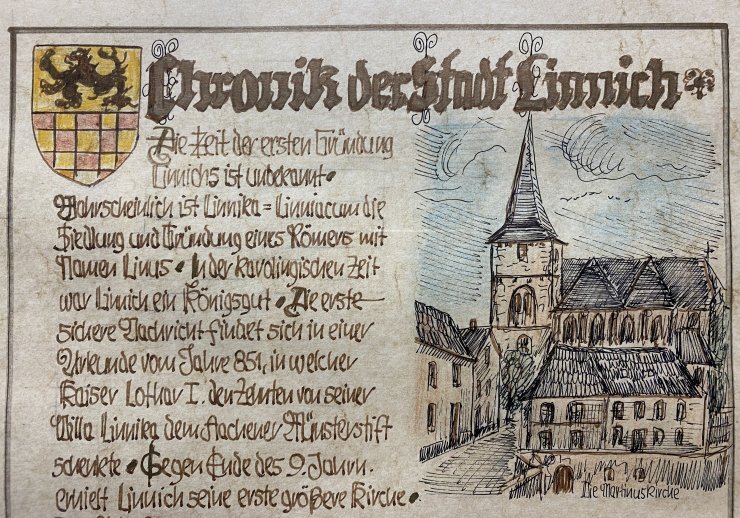 Chronik der Stadt Linnich
Die Zeit der ersten Gründung
Linnichs ist unbekannt.
Wahrscheinlich ist Linnika = Linniacum die
Siedlung und Gründung eines Römers mit
Namen Linus. In der karolingischen Zeit
war Linnich ein Königsgut. Die erste
sichere Nachricht findet sich in einer
Urkunde vom Jahre 851, in welcher
Kaiser Lothar I. den Zehnten von seiner
Villa Linnika dem Aachener Münsterstift
schenkte. Gegen Ende des 9. Jahrh.
erhielt Linnich seine erste größere Kirche.
Die Martinuskirche